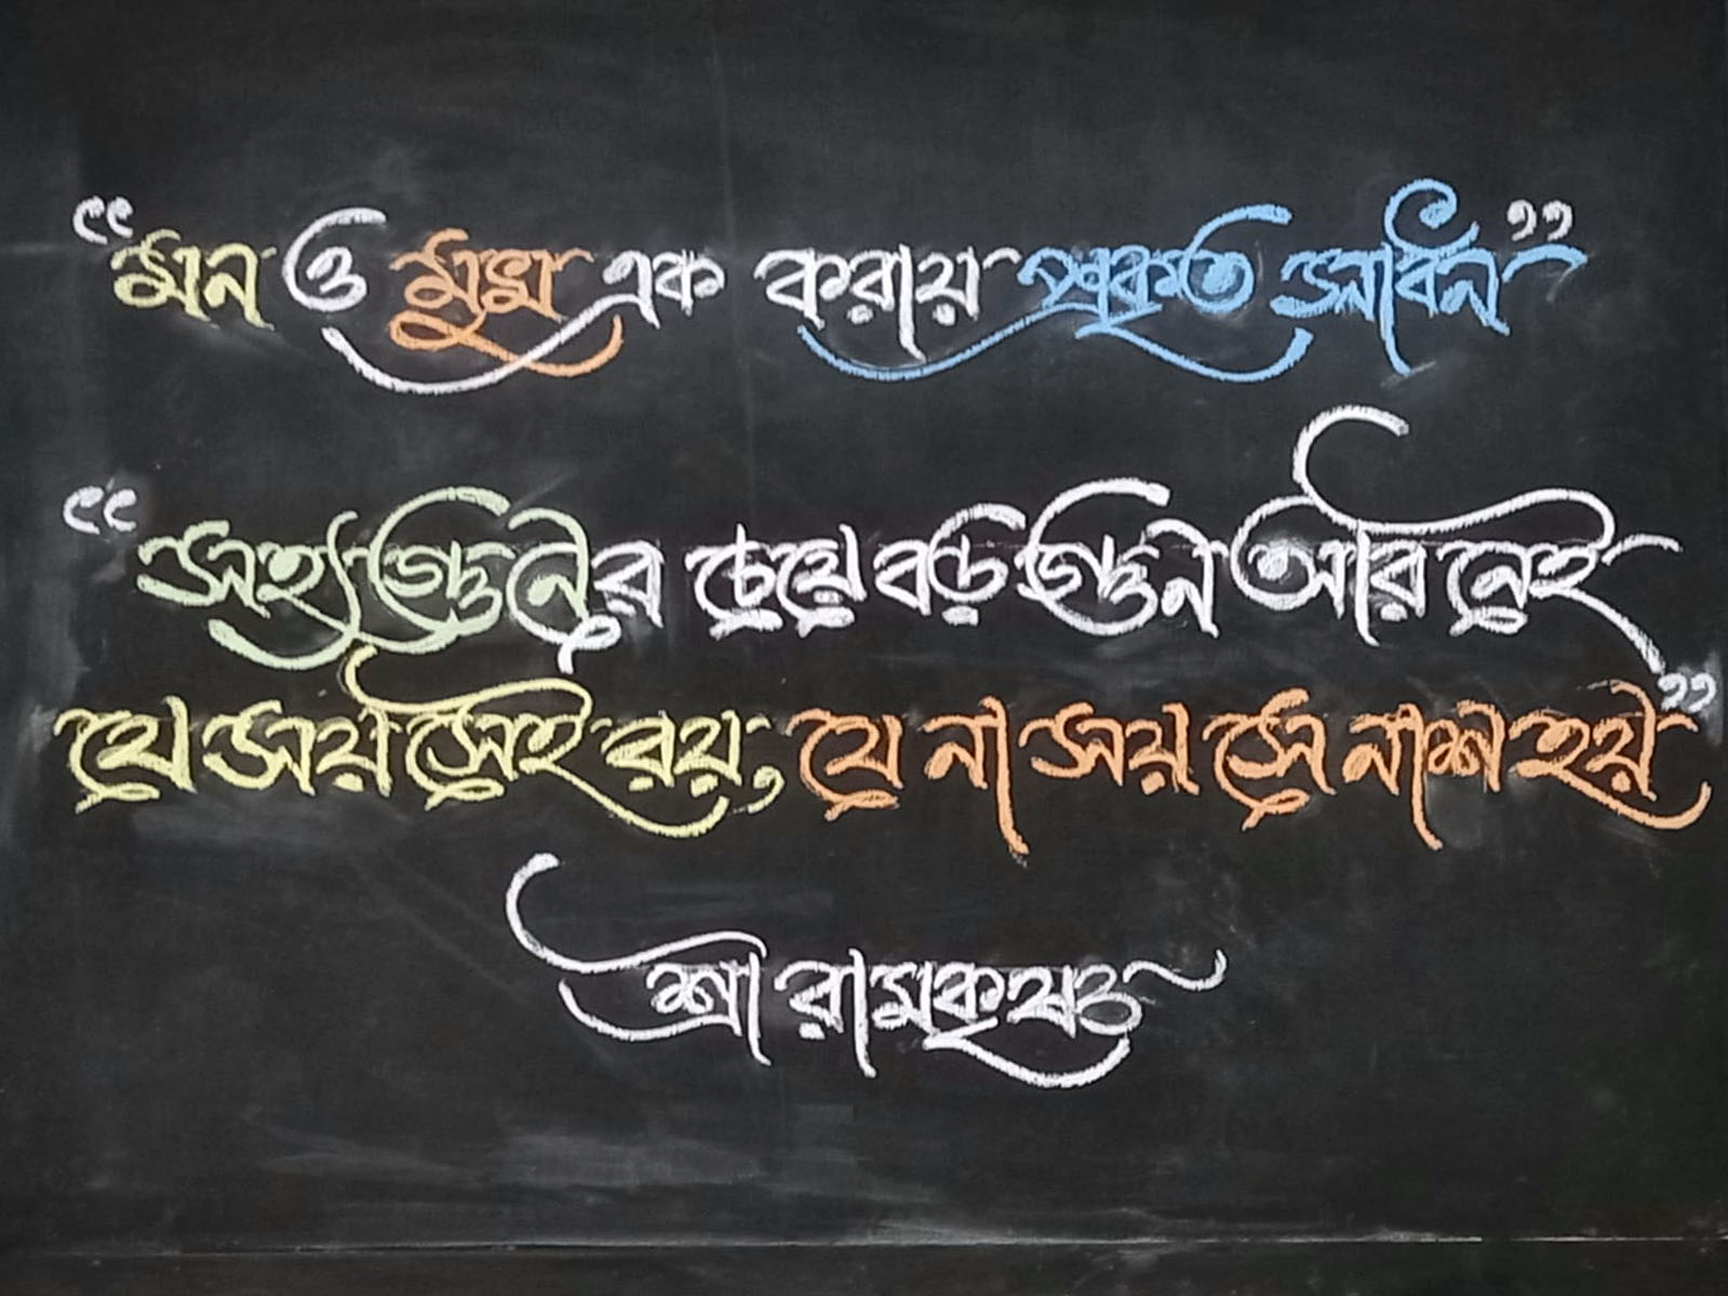 “মন ও মুখ এক করায় প্রকৃত সাধন”
“সহ্য গুনের চেয়ে বড় গুন আর নেই
যে সয় সেই রয়, যে না সয় সে নাশ হয়”
শ্রী রামকৃষ্ণ